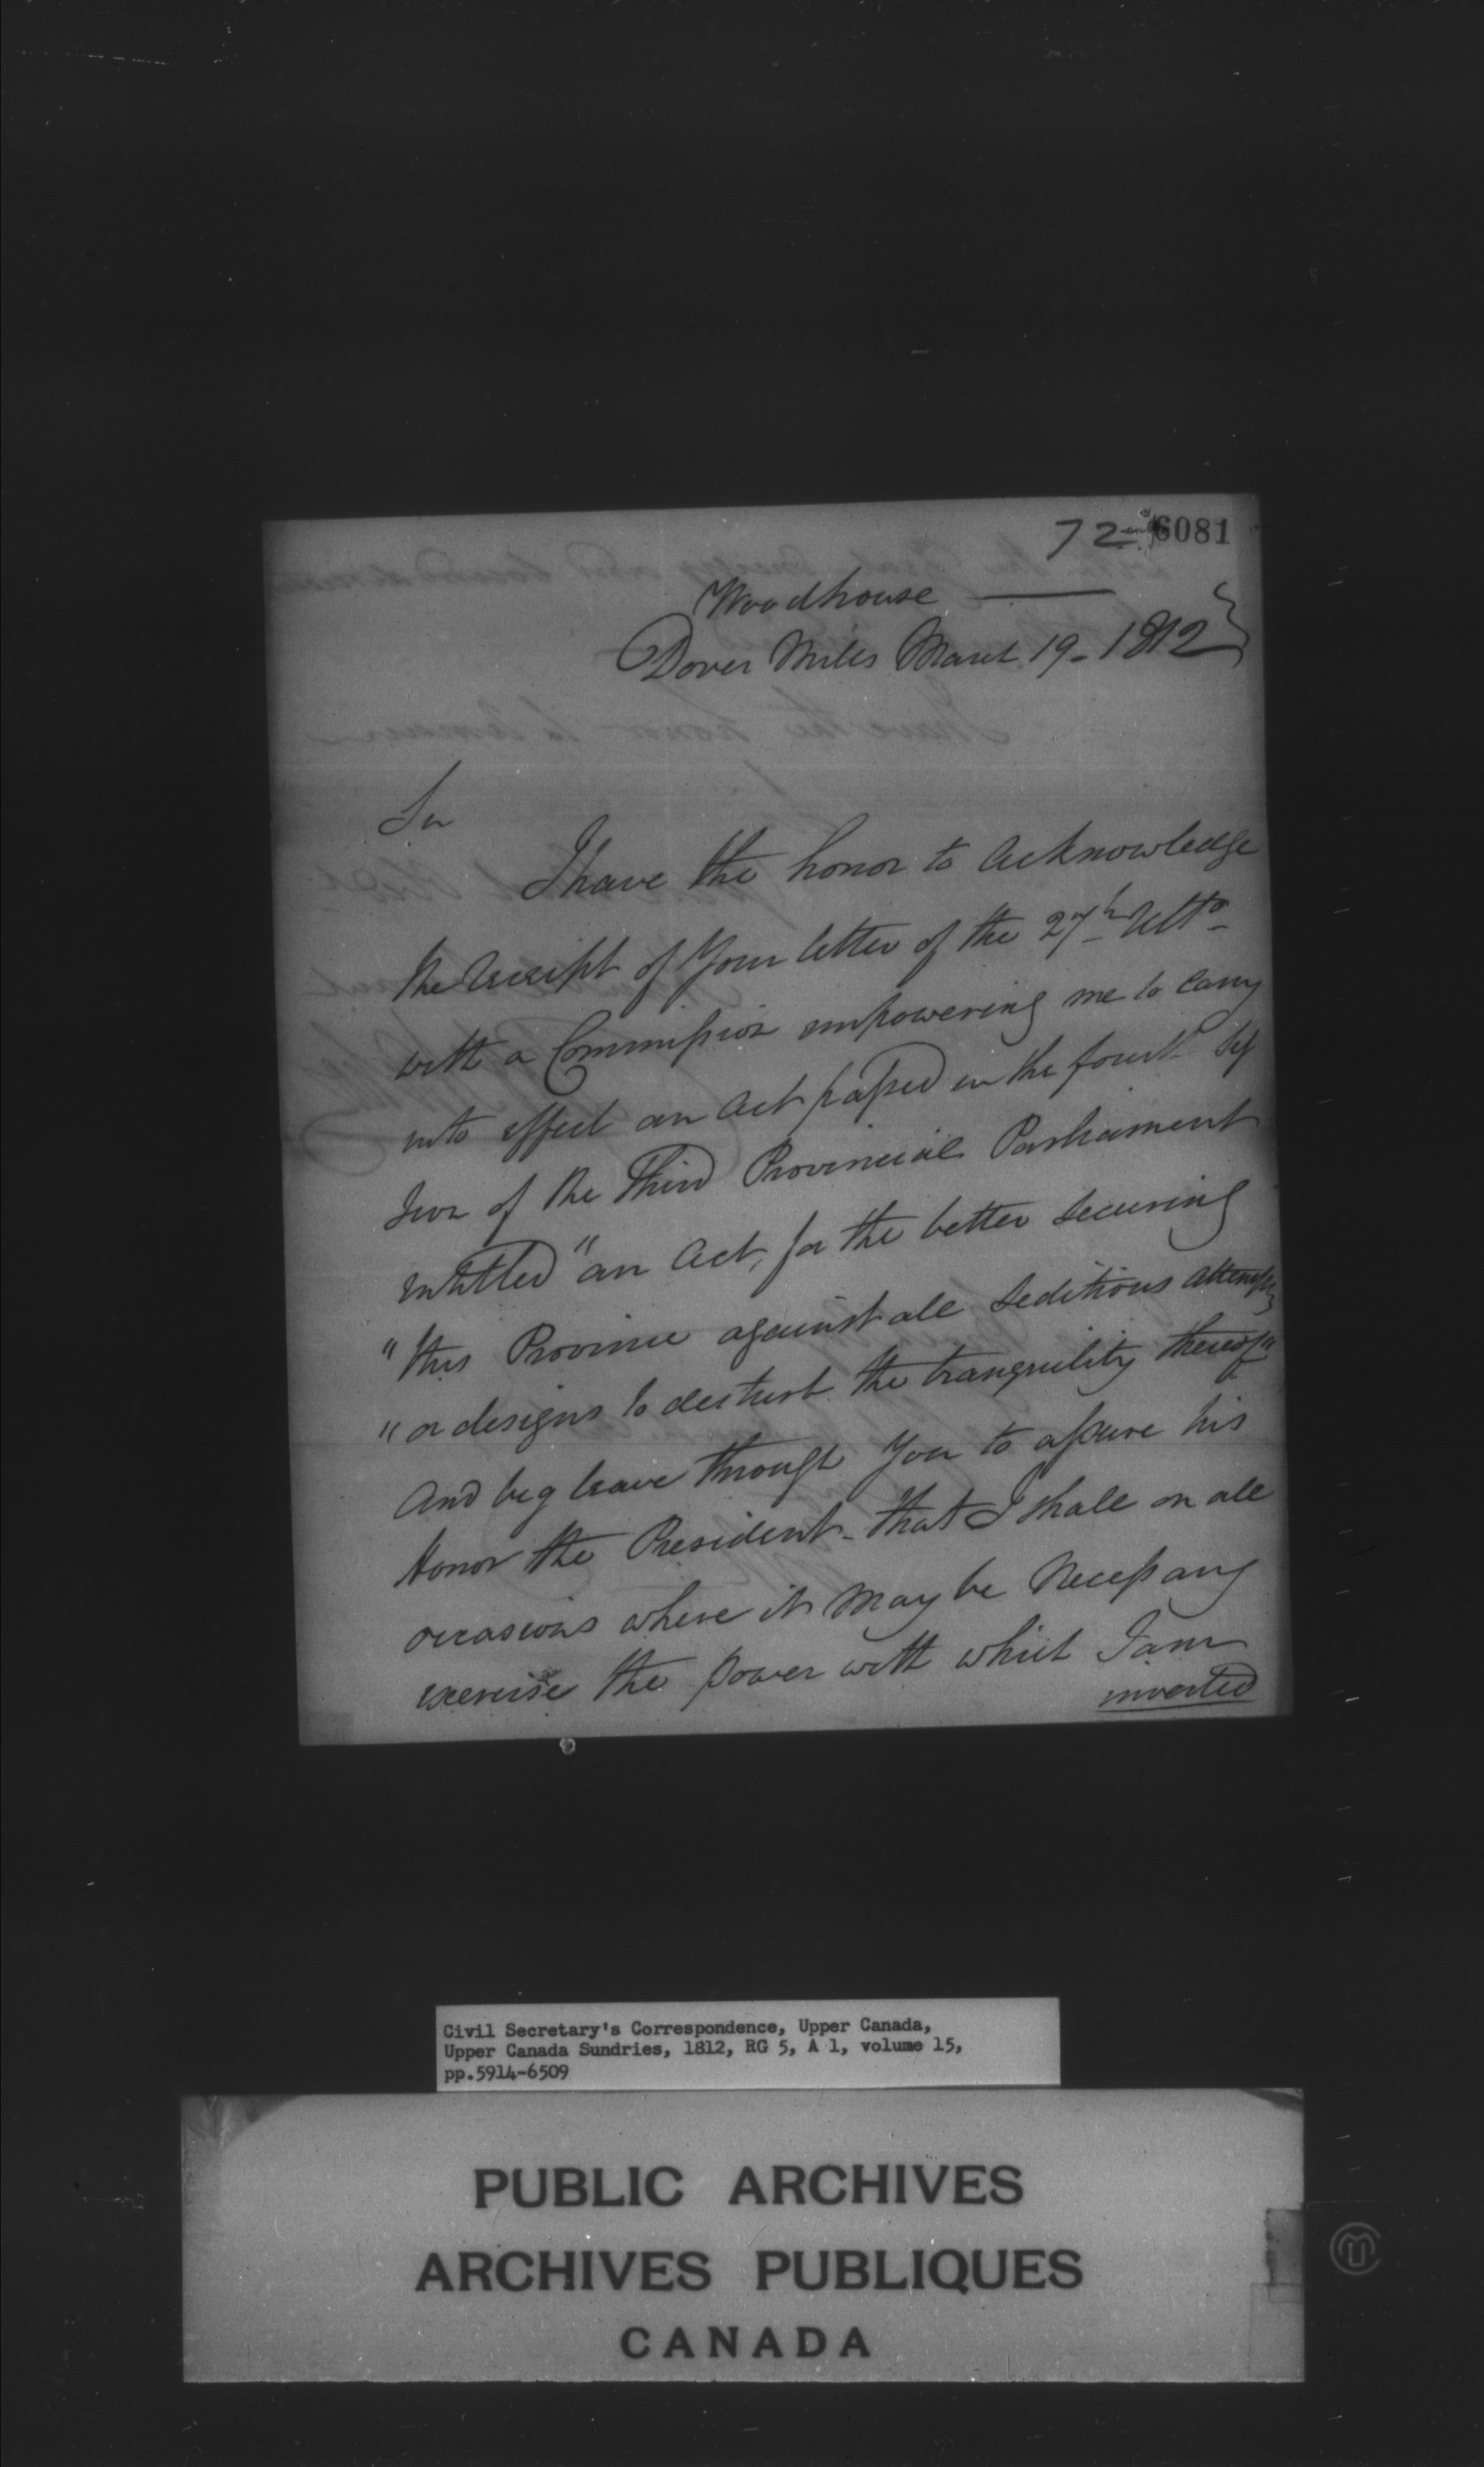 72 6081
Woodhouse
Dover Mills March 19 - 1812
Sir
I have the honor to acknowledge
the receipt of Your letter of the 27th Ulto
with a Commission empowering me to carry
into effect an Act passed in the fourth Ses
sion of the Third Provincial Parliament
intitled "an Act, for the better securing
"this Province against all seditious attempts
"or designs to disturb the tranquility thereof"
And beg leave through You to assure his
Honor the President - that I shall on all
occasions where it May be Necessary
exercise the power with which I am
invested
Civil Secretary's Correspondence, Upper Canada,
Upper Canada Sundries, 1812, RG 5, A 1, volume 15,
pp.5914-6509
PUBLIC ARCHIVES
ARCHIVES PUBLIQUES
CANADA